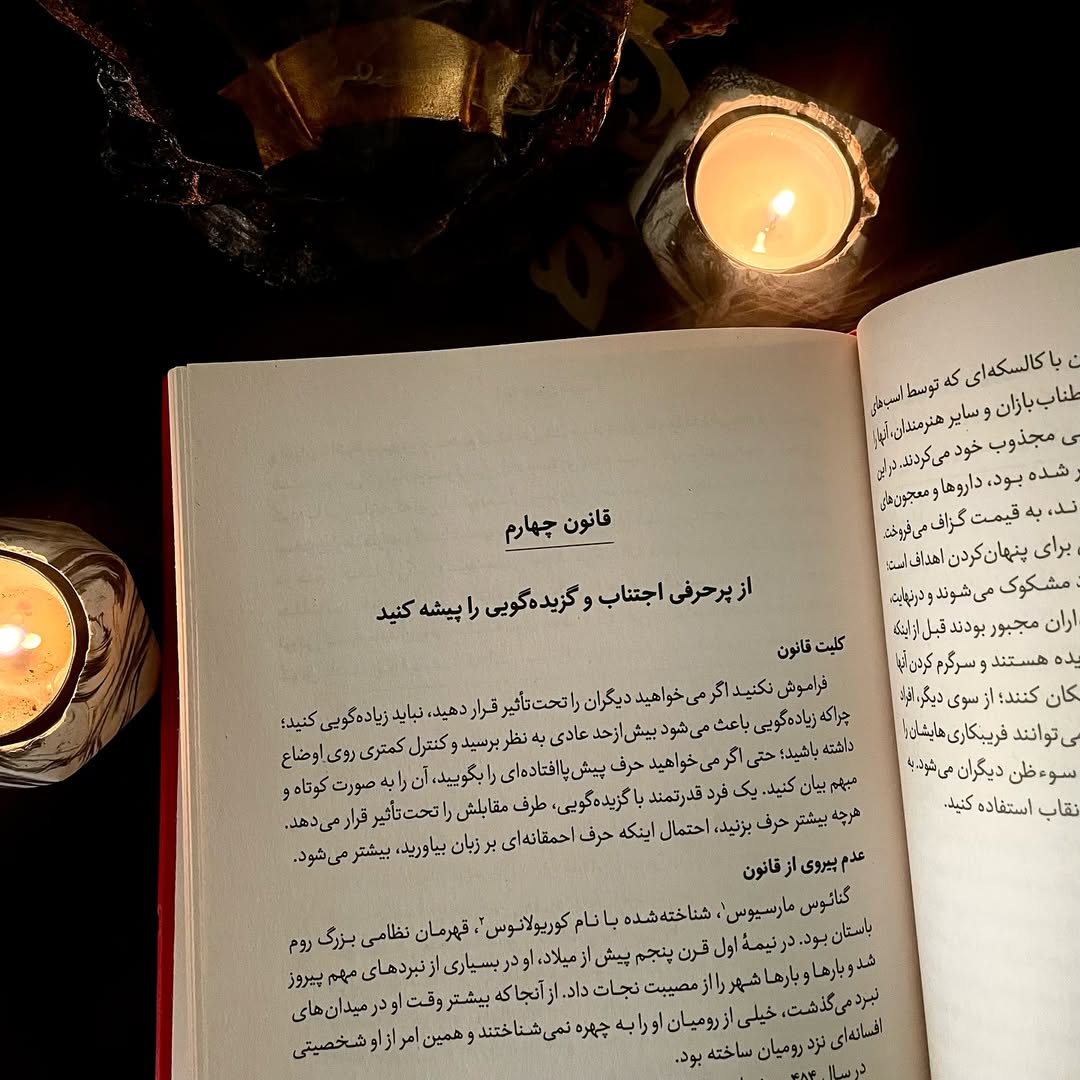 قانون چهارم
از پرحرفی اجتناب و گزیده‌گویی را پیشه کنید
کلیت قانون
فراموش نکنید اگر می‌خواهید دیگران را تحت‌تأثیر قرار دهید، نباید زیاده‌گویی کنید؛
چراکه زیاده‌گویی باعث می‌شود بیش‌ازحد عادی به نظر برسید و کنترل کمتری روی اوضاع
داشته باشید؛ حتی اگر می‌خواهید حرف پیش‌پاافتاده‌ای را بگویید، آن را به صورت کوتاه و
مبهم بیان کنید. یک فرد قدرتمند با گزیده‌گویی، طرف مقابلش را تحت‌تأثیر قرار می‌دهد.
هرچه بیشتر حرف بزنید، احتمال اینکه حرف احمقانه‌ای بر زبان بیاورید، بیشتر می‌شود.
عدم پیروی از قانون
گنائوس مارسیوس۱، شناخته‌شده با نام کوریولانوس۲، قهرمان نظامی بزرگ روم
باستان بود. در نیمهٔ اول قرن پنجم پیش از میلاد، او در بسیاری از نبردهای مهم پیروز
شد و بارها و بارها شهر را از مصیبت نجات داد. از آنجا که بیشتر وقت او در میدان‌های
نبرد می‌گذشت، خیلی از رومیان او را به چهره نمی‌شناختند و همین امر از او شخصیتی
افسانه‌ای نزد رومیان ساخته بود.
در سال ۴۸۴
با کالسکه‌ای که توسط اسب‌های
طناب‌بازان و سایر هنرمندان، آنها را
مجذوب خود می‌کردند. در این
شده بود، داروها و معجون‌های
به قیمت گزاف می‌فروختند.
برای پنهان‌کردن اهداف است؛
مشکوک می‌شوند و درنهایت،
مجبور بودند قبل از اینکه
هستند و سرگرم کردن آنها
کنند؛ از سوی دیگر، افراد
می‌توانند فریبکاری‌هایشان را
سوءظن دیگران می‌شود. به
نقاب استفاده کنید.